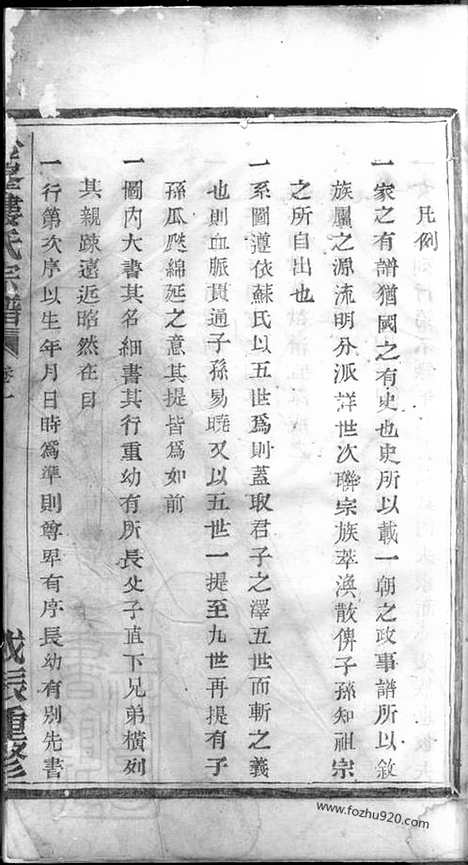 凡例
一家之有譜猶國之有史也史所以載一朝之政事譜所以敘
族屬之源流明分派詳世次聯宗族萃渙散俾子孫知祖宗
之所自出也
一系圖遵依蘇氏以五世爲則蓋取君子之澤五世而斬之義
也則血脈貫通子孫易曉又以五世一提至九世再提有子
孫瓜瓞綿延之意其提皆爲如前
一圖內大書其名細書其行重幼有所長父子直下兄弟橫列
其親疎遠近昭然在目
一行第次序以生年月日時爲準則尊卑有序長幼有別先書
婁氏宗譜 卷一 戊辰重修
www.fozhu920.com